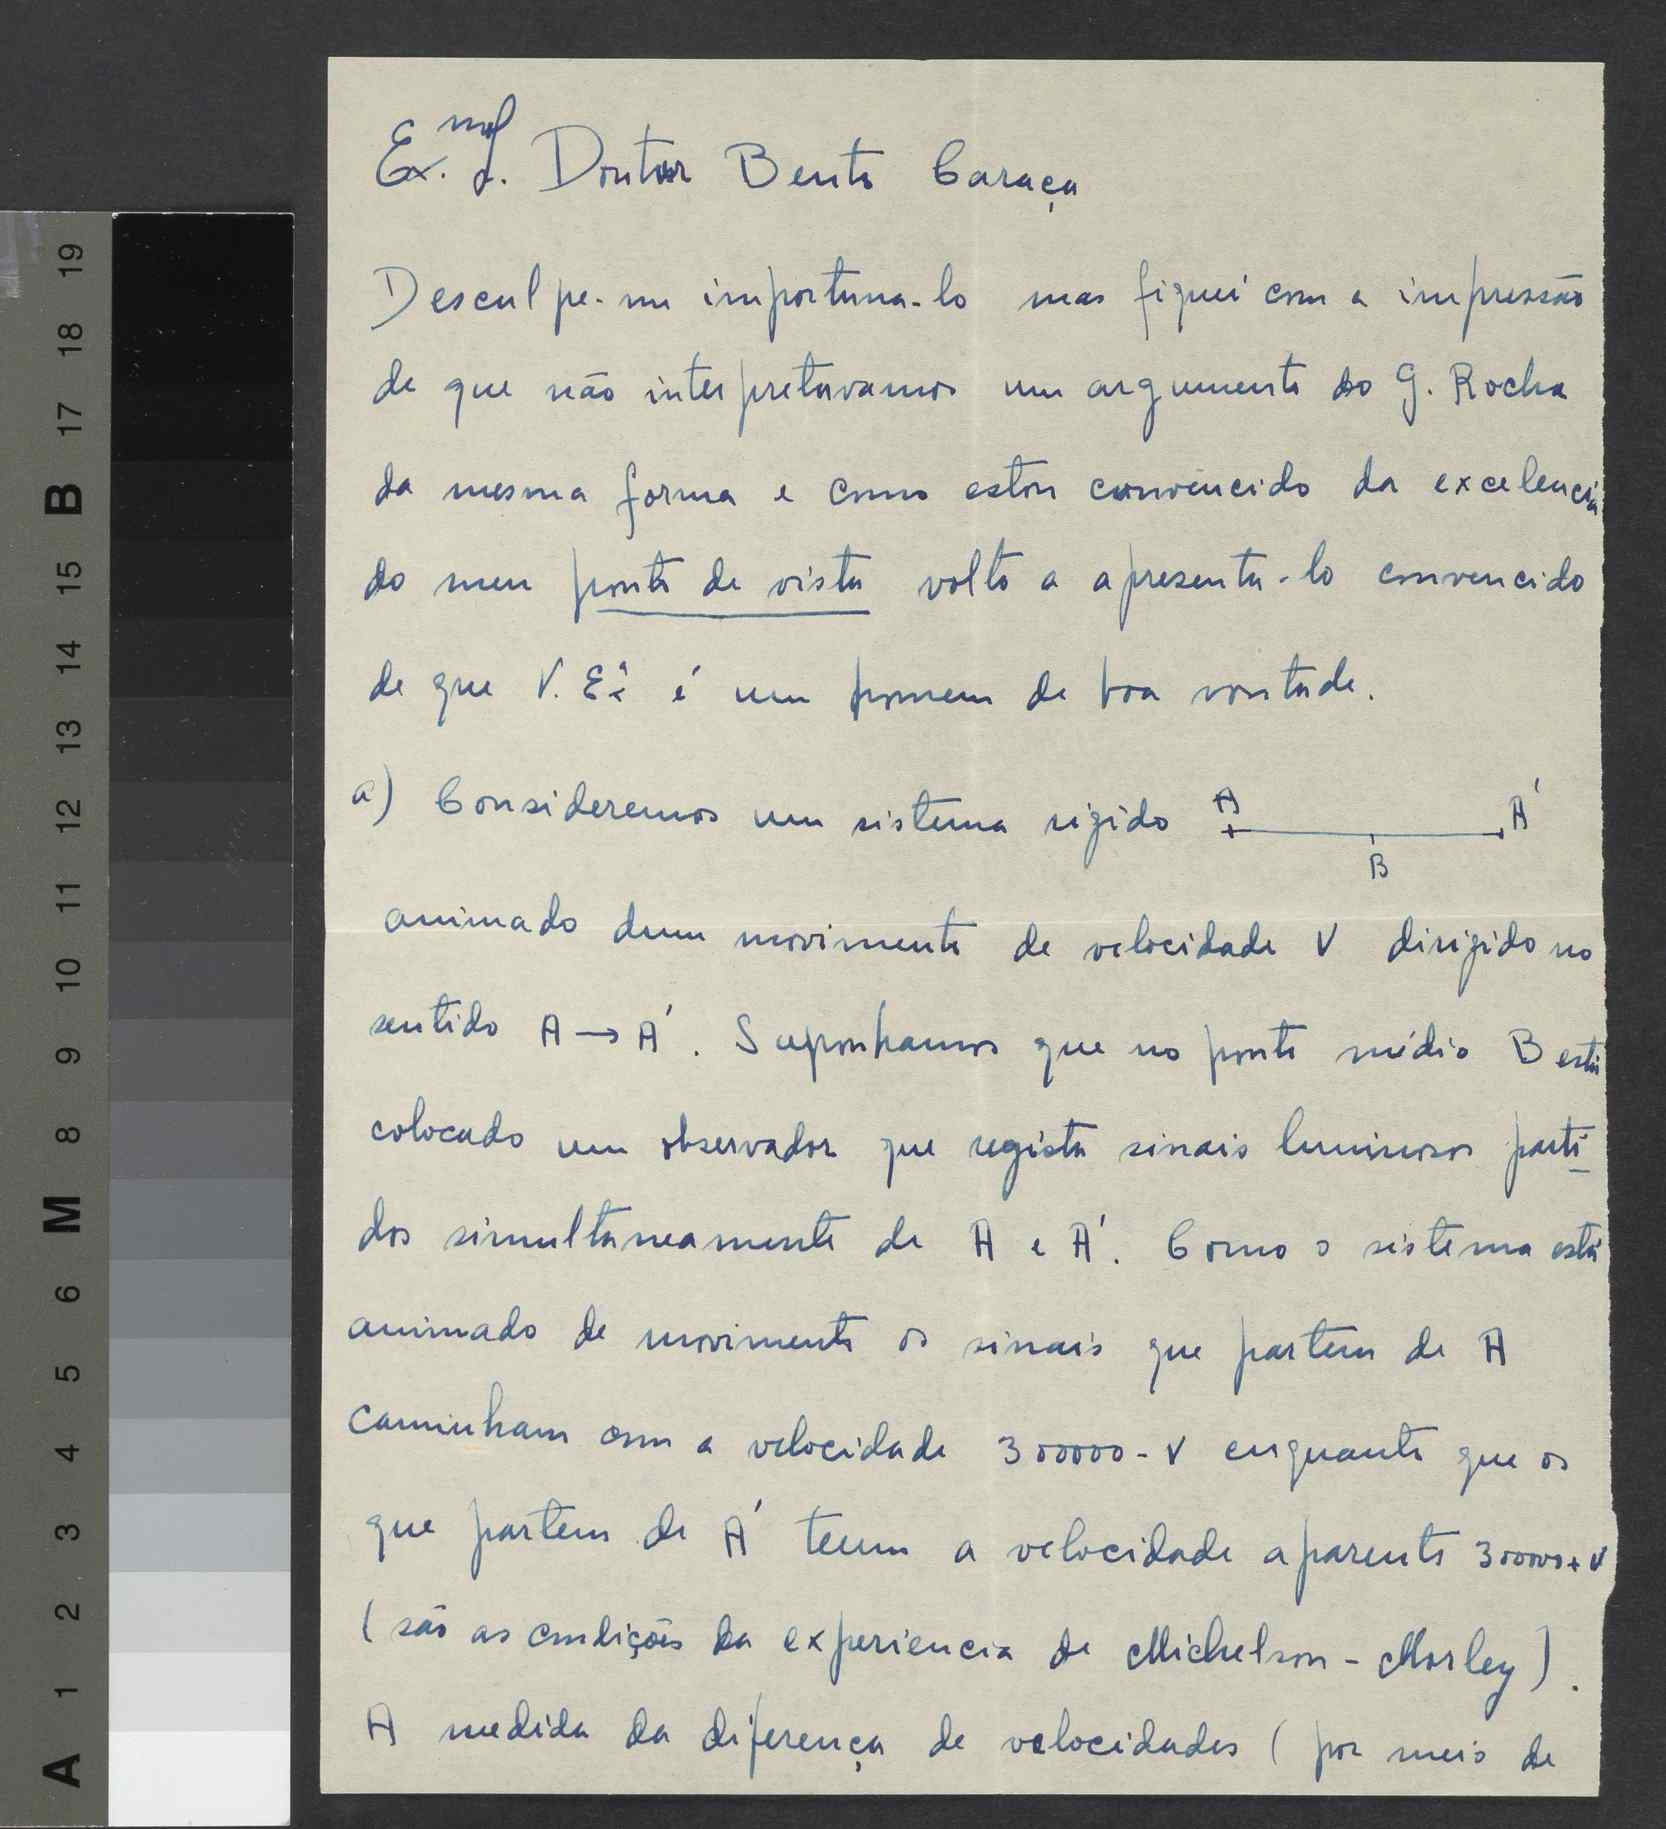 Ex.mo S. Doutor Bento Caraça
Desculpe-me importuna-lo mas fiquei com a impressão
de que não interpretavamos um argumento do G. Rocha
da mesma forma e como estou convencido da excelencia
do meu ponto de vista volto a apresenta-lo convencido
de que V. Exª é um homem de boa vontade.
a) Consideremos um sistema rigido A A'
B
animado dum movimento de velocidade V dirigido no
sentido A → A'. Suponhamos que no ponto médio B está
colocado um observador que regista sinais luminosos parti-
dos simultaneamente de A e A'. Como o sistema está
animado de movimento os sinais que partem de A
caminham com a velocidade 300000 - V enquanto que os
que partem de A' teem a velocidade aparente 300000 + V
(são as condições da experiencia de Michelson - Morley).
A medida da diferença de velocidades (por meio de
19
18
17
B
15
14
13
12
11
10
9
8
M
6
5
4
3
2
1
A